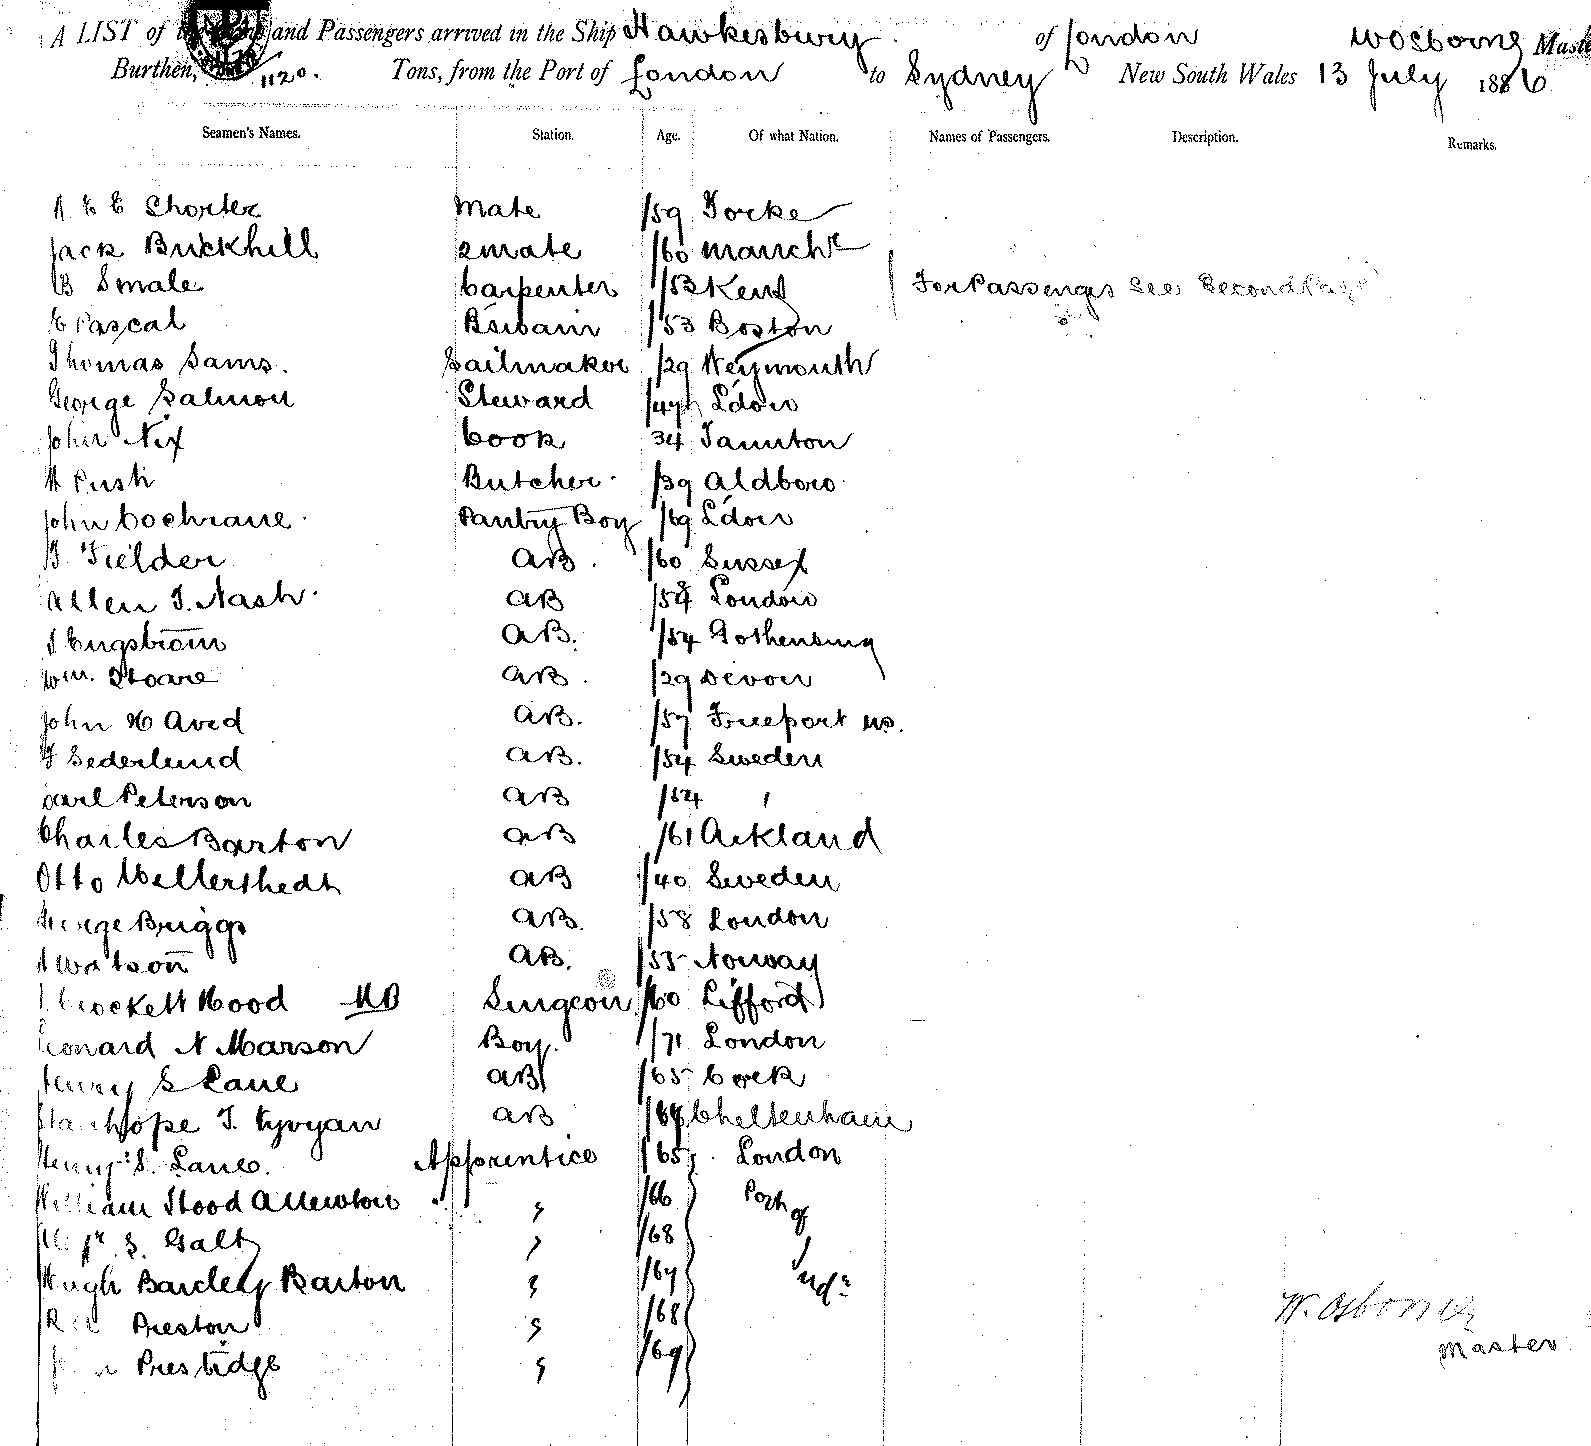 A LIST of and Passengers arrived in the Ship Hawkesbury of London W Osborne Master
Burthen, 1120. Tons, from the Port of London to Sydney New South Wales 13 July 1886
Seamen's Names. Station. Age. Of what Nation. Names of Passengers. Description. Remarks.
E E Shorter Mate /59 Yorke
Jack Buckhill 2 mate /60 Manchr
B Smale Carpenter /53 Kent For Passengs See Second Page
E Pascal Bswain /53 Boston
Thomas Sams. Sailmaker /29 Weymouth
George Salmon Steward /47 L'don
John Nix Cook 34 Taunton
H Push Butcher /39 Aldboro
John Cochrane Pantry Boy /69 L'don
Fielder AB. /60 Sussex
Allen T. Nash AB London
Engstrom AB. /54 Gothenburg
Wm. Hoare AB. /29 Devon
John H Avid AB. /57 Freeport NS.
Sederlund AB. /54 Sweden
Carl Peterson AB /54 "
Charles Barton AB /61 Ackland
Otto Wellershedt AB /40 Sweden
George Briggs AB. /58 London
Watson AB. /55 Norway
Crockett Hood MB Surgeon /60 Lifford
Leonard N Marson Boy. /71 London
Henry S Lane AB /65 Cork
Stanhope T. Vyvyan AB Cheltenham
Henry S. Lane. Apprentice /65 London
William Hood Allewton " " /66 Port of
S. Galt " /68 Ind:
Hugh Barcley Barton " /67
Preston " /68
Prestidge " /69
W. Osborne
Master